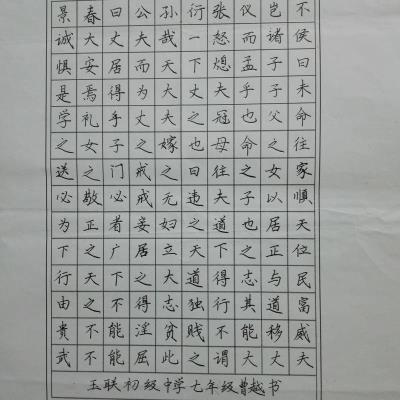 景春曰公孙衍张仪岂不
诚大丈夫哉一怒而诸侯
惧安居而天下熄孟子曰
是焉得为大丈夫乎子未
学礼乎丈夫之冠也父命
之女子之嫁也母命之往
送之门戒之曰往之女家
必敬必戒无违夫子以顺
为正者妾妇之道也居天
下之广居立天下之正位
行天下之大道得志与民
由之不得志独行其道富
贵不能淫贫贱不能移威
武不能屈此之谓大丈夫
玉联初级中学七年级曾越书